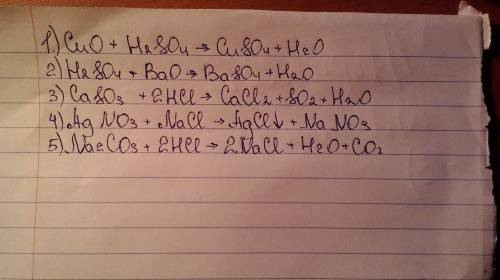 1) CuO + H2SO4 → CuSO4 + H2O
2) H2SO4 + BaO → BaSO4 + H2O
3) CaSO3 + 2HCl → CaCl2 + SO2 + H2O
4) AgNO3 + NaCl → AgCl↓ + NaNO3
5) Na2CO3 + 2HCl → 2NaCl + H2O + CO2